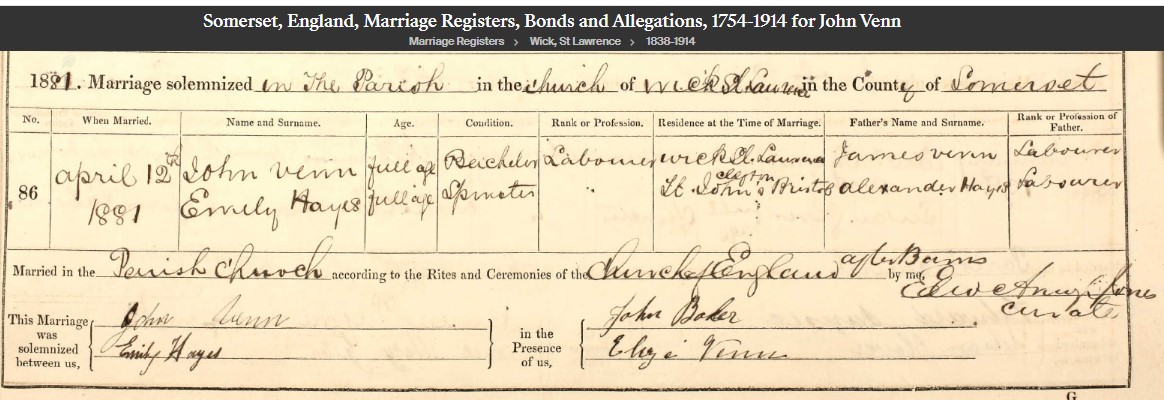 Somerset, England, Marriage Registers, Bonds and Allegations, 1754-1914 for John Venn
Marriage Registers > Wick, St Lawrence > 1838-1914
1881. Marriage solemnized in The Parish in the church of Wick St Lawrence in the County of Somerset
No. When Married. Name and Surname. Age. Condition. Rank or Profession. Residence at the Time of Marriage. Father's Name and Surname. Rank or Profession of Father.
86 april 12th 1881 John Venn full age Bachelor Labourer Wick St. Lawrence James Venn Labourer
Emily Hayes full age Spinster " St. John's Clifton Bristol alexander Hayes Labourer
Married in the Parish Church according to the Rites and Ceremonies of the Church of England after Banns by me,
Edw Jones
curate
This Marriage was solemnized between us, John Venn
Emily Hayes
in the Presence of us, John Baker
Eliza Venn
G